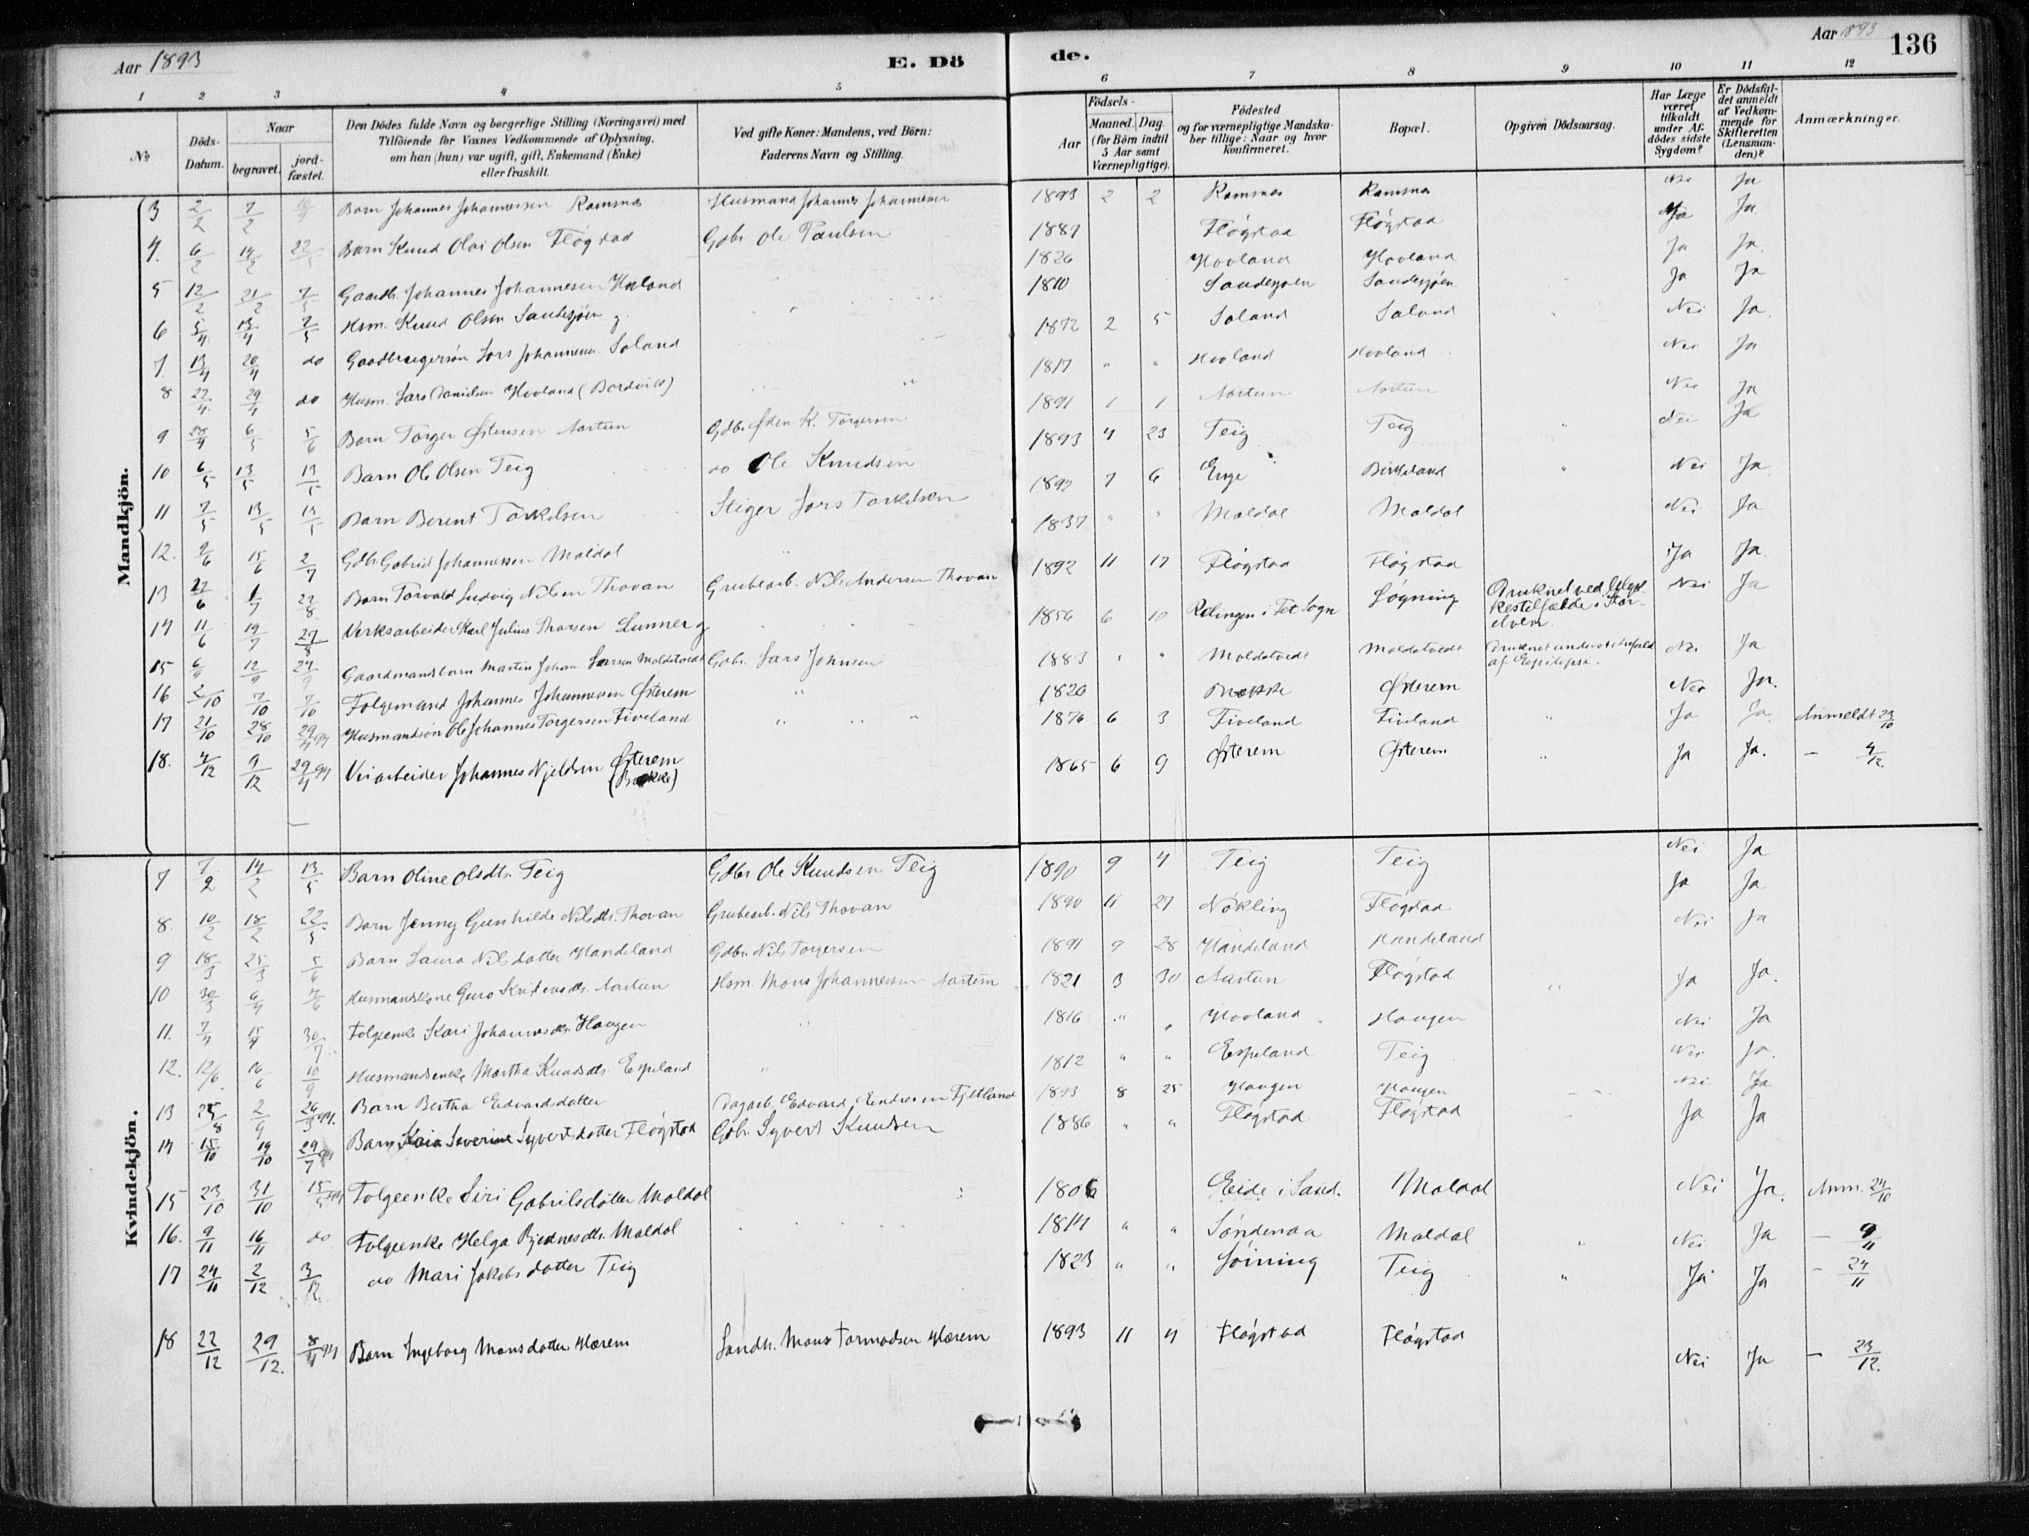 Aar 1893
E. Dö
de.
Aar 1893
136
1 2 3 4 5 6 7 8 9 10 11 12
No
Döds-Datum.
Naar
begravet.
jord-fæstet.
Den Dödes fulde Navn og borgerlige Stilling (Næringsvei) med
Tilföiende for Voxnes Vedkommende af Oplysning.
om han (hun) var ugift, gift, Enkemand (Enke)
eller fraskilt.
Ved gifte Koner: Mandens, ved Börn:
Faderens Navn og Stilling.
Födsels-
Aar
Maaned. Dag
(for Börn indtil
5 Aar samt
Værnepligtige).
Födested
og for værnepligtige Mandska-
ber tillige: Naar og hvor
konfirmeret.
Bopæl.
Opgiven Dödsaarsag.
Har Læge
været
tilkaldt
under Af-
dödes sidste
Sygdom?
Er Dödsfal-
det anmeldt
af Vedkom-
mende for
Skifteretten
(Lensman-
den)?
Anmærkninger.
Mandkjön.
3 2/2 7/2 Barn Johannes Johannessen Ramsnes Husmand Johannes Johannesen 1893 2 2 Ramsnes Ramsnes Nei Ja
4. 6/2 14/2 22/5 Barn Knud Olai Olsen Fløgstad Gbr. Ole Paulsen 1887 Fløgstad Fløgstad Ja Ja
5 12/2 21/2 7/5 Gaardb. Johannes Johannesen Hovland 1826 Hovland Hovland Ja Ja.
6 5/4 13/4 7/5 Hsm. Knud Olsen Sandesjøen g. 1810 Sandesjøen Sandesjøen Ja Ja
7. 13/4 20/4 do Gaardbrugersøn Lars Johannesen Soland 1872 2 5 Soland Soland Nei Ja.
8 22/4 29/4 do Husm. Lars Danielsen Hovland (Bordvik) 1817 " " Hovland Hovland Nei Ja
9 28/4 6/5 5/6 Barn Torger Østensen Aartun Gdbr. Østen K. Torgersen 1891 1 1 Aartun Aartun Nei Ja
10 6/5 13/5 13/5 Barn Ole Olsen Teig do Ole Knudsen 1893 4 23 Teig Teig Nei Ja
11 7/5 13/5 13/5 Barn Berent Torkelsen Stiger Lars Torkelsen 1893 7 6 Enge Birkeland Nei Ja
12. 9/6 15/6 2/7 Gdb. Gabriel Johannessen Moldal 1837 " " Moldal Moldal Nei Ja
13 22/6 1/7 27/8 Barn Torvald Ludvig Nilsen Thovan Grubearb. Nils Andersen Thovan 1892 11 17 Fløgstad Fløgstad Ja Ja.
14 11/6 19/7 27/8 Verksarbeider Karl Julius Thorsen Lunner g 1856 6 10 i Fet Sogn Løgning Druknet ved Ulyk-
kestilfælde i Stor-
elven. Nei Ja
15 6/9 12/9 24/9 Gaardmandsbarn Martin Johan Larsen Moldetvedt Gbr. Lars Johnsen 1883 " " Moldetvedt Moldetvedt Druknet under et Anfald
af Epilepsi. Nei Ja
16 2/10 7/10 7/10 Folgemand Johannes Johannessen Østerem 1820 Brekke Østerem Nei Ja.
17 21/10 28/10 29/4 94 Husmandsøn Ole Johannes Torgersen Fiveland 1876 6 3 Fiveland Fiveland Ja Ja. Anmeldt 23/10
18. 4/12 9/12 29/4 94 Veiarbeider Johannes Njeldsen Østerem
(Bakke) 1865 6 9 Østerem Østerem Ja Ja. – 4/12.
Kvindekjön.
7 7/2 14/2 13/5 Barn Oline Olsdtr. Teig Gdbr Ole Knudsen Teig 1890 9 4 Teig Teig Nei Ja
8. 10/2 18/2 22/5 Barn Jenny Gunhilde Nilsdtr. Thovan Grubearb. Nils Thovan 1890 11 27 Nøkling Fløgstad Ja Ja
9 18/3 25/3 5/6 Barn Laura Nilsdatter Handeland Gdbr. Nils Torgersen 1891 9 28 Handeland Handeland Nei Ja
10 30/3 6/4 4/6 Husmandskone Guro Aartun Hsm. Mons Johannessen Aartun 1821 3 30 Aartun Fløgstad Ja Ja.
11. 7/4 15/4 30/7 Folgeenke Kari Johannesdtr. Haugen 1816 " " Hovland Haugen Nei Ja
12. 12/6. 16/6 10/9 Husmandsenke Martha Knudsdtr. Espeland 1812 " " Espeland Teig Nei Ja.
13 25/8 2/9 94. Barn Bertha Edvardsdatter Dagarb. Edvard Endresen Fjetland 1893 8 25 Haugen Haugen Nei Ja
14 15/10 19/10 29/7 94 Barn Kaia Severine Syvertsdatter Fløgstad Gbr. Syvert Knudsen 1886 " " Fløgstad Fløgstad Ja Ja
15 23/10 31/10 15/5 94 Folgeenke Siri Gabrilsdatter Moldal 1806 Eide i Sand. Moldal Nei Ja. Anm. 24/10
16. 9/11 16/11 do Folgeenke Helga Bjednesdtr. Moldal 1814 " " Søndenaa Moldal Nei Ja – 9/11
17 24/11 2/12 3/12 do Mari Jakobsdatter Teig 1823 " " Løining Teig Ja Ja – 24/11
18 22/12 29/12. 8/4 94 Barn Ingeborg Monsdatter Hærem Landh. Mons Tormodsen Hærem 1893 11 4 Fløgstad Fløgstad Nei Ja – 23/12.